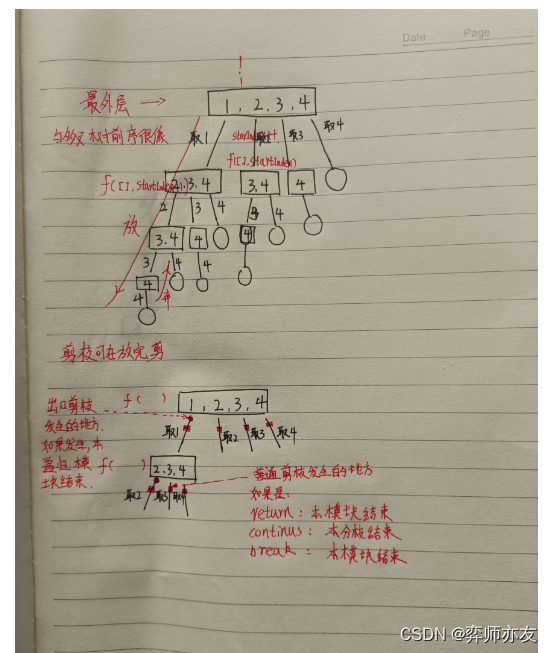 Date Page
最外层 → 1, 2, 3, 4
与多叉树前序很像 取1 取2 取3 取4
f([], startIndex)
f([], startIndex) 2, 3, 4 3, 4 4
放 2 3 4 3 4
3, 4 4 4
3 4 4
4
4
剪枝可在放完剪
出口剪枝 f( ) 1, 2, 3, 4
发生的地方.
如果发生,本 取1 取2 取3 取4
f( ) 2, 3, 4
块结束. 取2 取3 取4
普通剪枝发生的地方
如果是:
return: 本模块结束
continus: 本分枝结束
break: 本模块结束
CSDN @弈师亦友